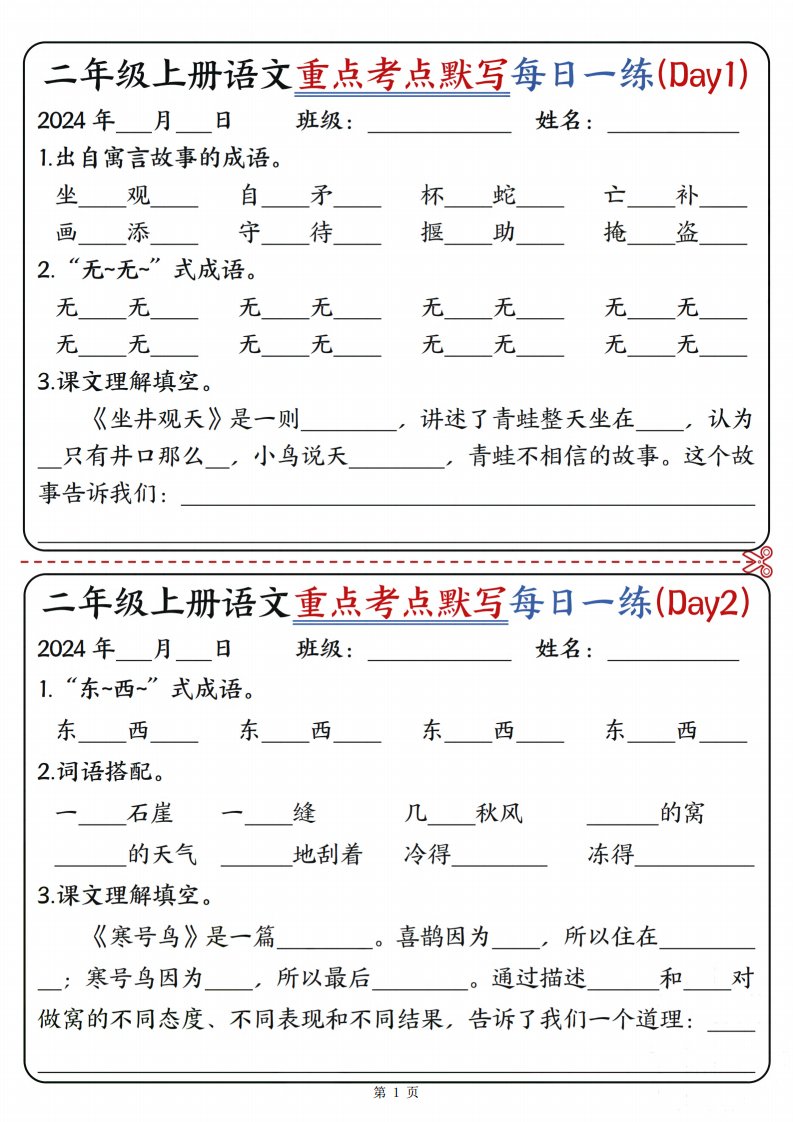 二年级上册语文重点考点默写每日一练(Day1)
2024年___月___日 班级：____________ 姓名：___________
1.出自寓言故事的成语。
坐____观____ 自____矛____ 杯____蛇____ 亡____补____
画____添____ 守____待____ 揠____助____ 掩____盗____
2.“无~无~”式成语。
无____无____ 无____无____ 无____无____ 无____无____
无____无____ 无____无____ 无____无____ 无____无____
3.课文理解填空。
《坐井观天》是一则________，讲述了青蛙整天坐在____，认为
__只有井口那么__，小鸟说天________，青蛙不相信的故事。这个故
事告诉我们：________________________________________________
____________________________________________________________
二年级上册语文重点考点默写每日一练(Day2)
2024年___月___日 班级：____________ 姓名：___________
1.“东~西~”式成语。
东____西____ 东____西____ 东____西____ 东____西____
2.词语搭配。
一____石崖 一____缝 几____秋风 ______的窝
______的天气 ______地刮着 冷得________ 冻得__________
3.课文理解填空。
《寒号鸟》是一篇________。喜鹊因为____，所以住在________
__；寒号鸟因为____，所以最后________。通过描述______和____对
做窝的不同态度、不同表现和不同结果，告诉了我们一个道理：____
____________________________________________________________
第 1 页